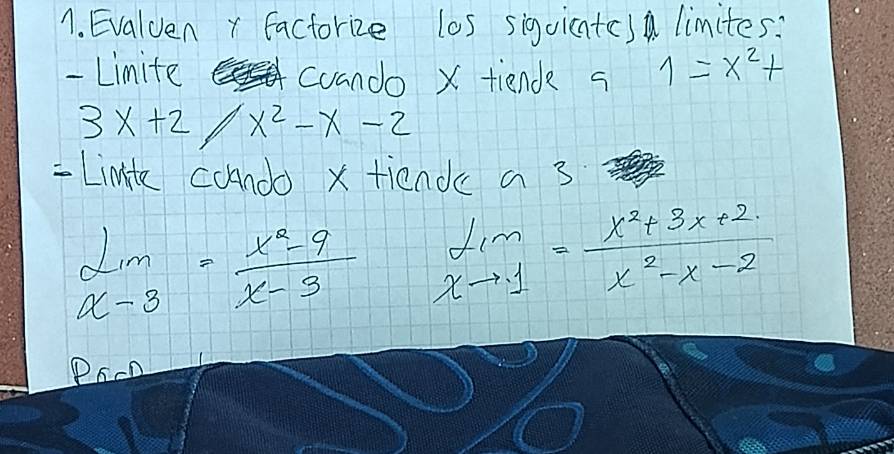 1. Evaluen y factorize los siguientes limites:
- Limite cuando x tiende a 1 = x² +
3x + 2 / x² - x - 2
= Limite cuando x tiende a 3
Lim x - 3 = x² - 9 / x - 3 Lim x → 1 = x² + 3x + 2. / x² - x - 2